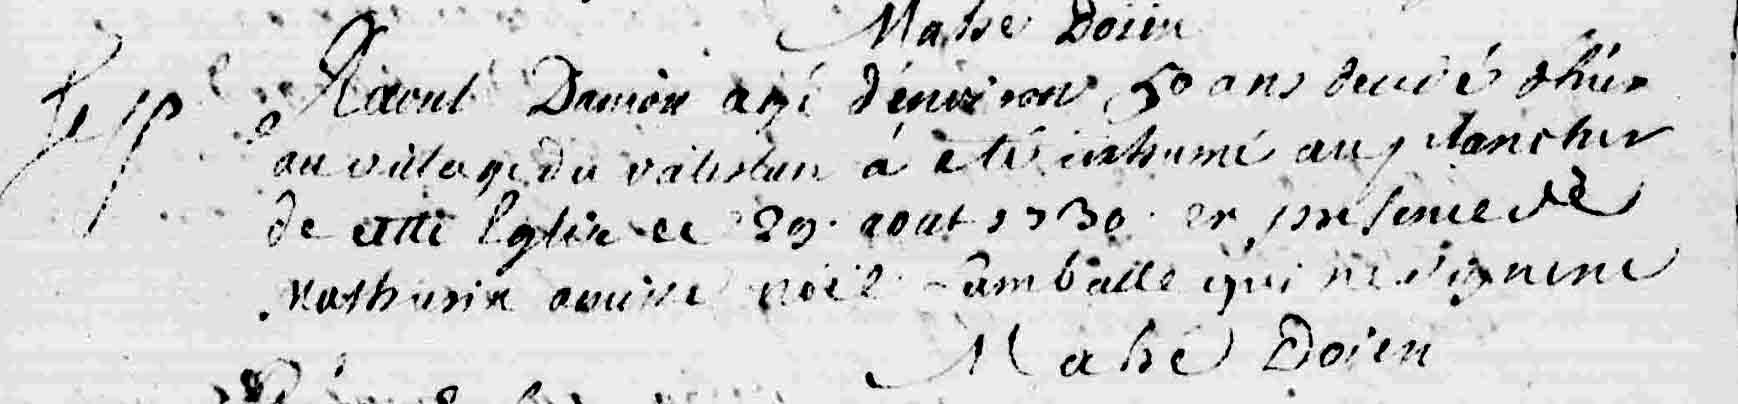 Mahé Doien
Raoul Damion agé d'environ 50 ans decedé d'hier
au village du a été inhumé au plancher
de cette Eglise ce 29 aout 1730 en presence de
Mathurin noël Lamballe qui ne signent
Mahé Doien